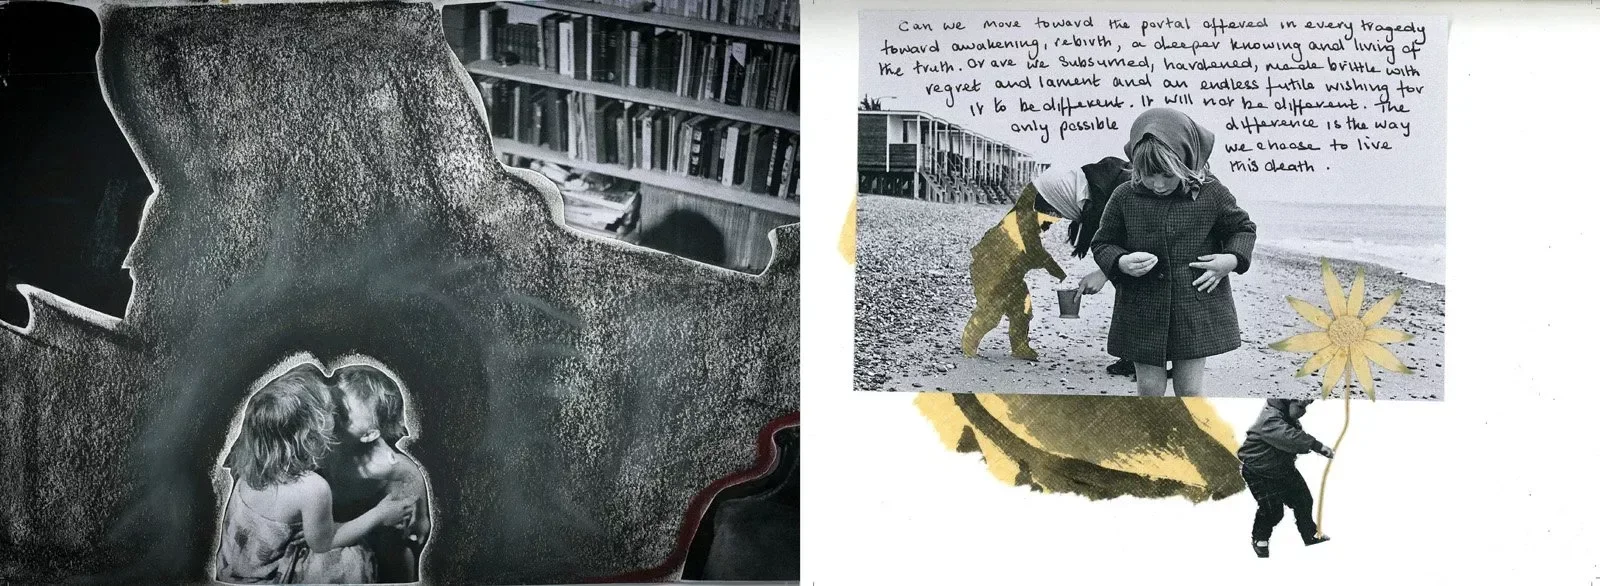 Can we move toward the portal offered in every tragedy
toward awakening, rebirth, a deeper knowing and living of
the truth. Or are we subsumed, hardened, made brittle with
regret and lament and an endless futile wishing for
it to be different. It will not be different. The
only possible difference is the way
we choose to live
this death.